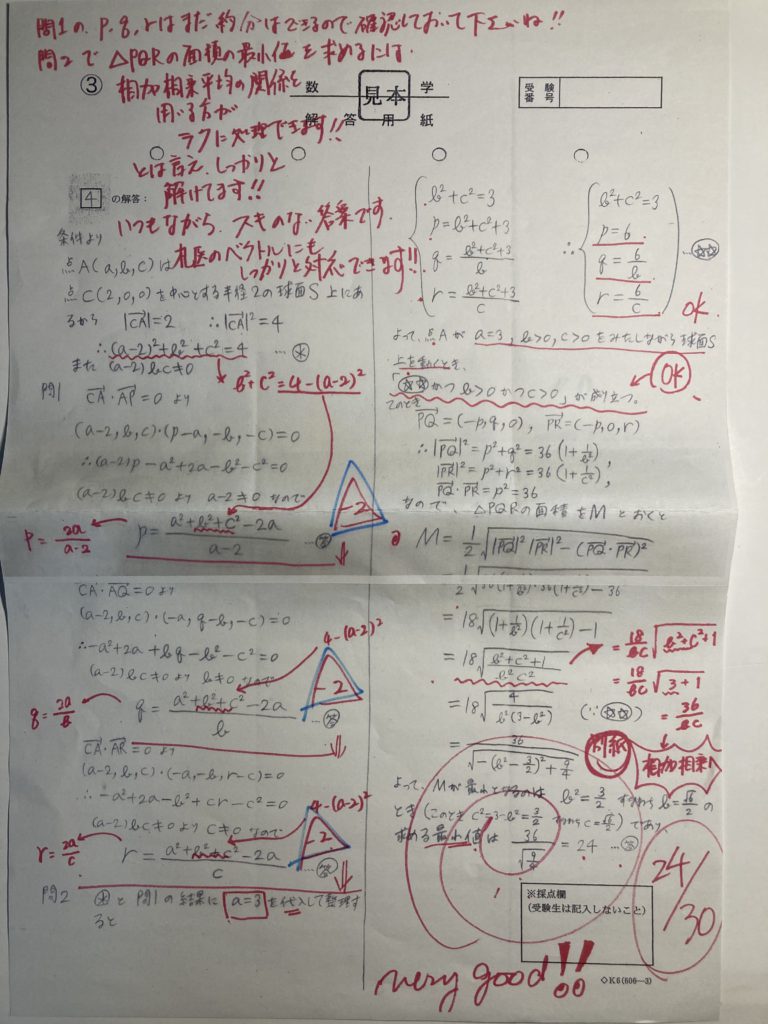 問1の p, q, r はまだ約分はできるので確認しておいて下さいね!!
問2で △PQRの面積の最小値を求めるには、
相加相乗平均の関係を
用いる方が
ラフに処理できます!!
とは言え、しっかりと
解けてます!!
いつもながら、スキのない答案です.
札医のベクトルにも
しっかりと対応できます!!
③
数 見本 学
解 答 用 紙
受験番号
4 の解答:
条件より
点A(a,b,c)は
点C(2,0,0)を中心とする半径2の球面S上にあ
るから |CA|=2 ∴|CA|²=4
∴(a-2)²+b²+c²=4 …㊍
また (a-2)bc≠0
* b²+c²=4-(a-2)²
問1 CA・AP=0 より
(a-2,b,c)・(p-a,-b,-c)=0
∴(a-2)p-a²+2a-b²-c²=0
(a-2)bc≠0 より a-2≠0 なので
p=2a/(a-2)
p=(a²+b²+c²-2a)/(a-2) …答
-2
CA・AQ=0 より
(a-2,b,c)・(-a,q-b,-c)=0
∴-a²+2a+bq-b²-c²=0
(a-2)bc≠0 より b≠0 なので
4-(a-2)²
q=2a/b
q=(a²+b²+c²-2a)/b …答
-2
CA・AR=0 より
(a-2,b,c)・(-a,-b,r-c)=0
∴-a²+2a-b²+cr-c²=0
(a-2)bc≠0 より c≠0 なので
4-(a-2)²
r=2a/c
r=(a²+b²+c²-2a)/c …答
-2
問2 ㊍と問1の結果に a=3 を代入して整理す
ると
b²+c²=3
p=b²+c²+3
q=(b²+c²+3)/b
r=(b²+c²+3)/c
∴
b²+c²=3
p=6
q=6/b
r=6/c
…☆☆
OK
よって、点Aが a=3, b>0, c>0 をみたしながら球面S
上を動くとき、
「☆☆かつ b>0 かつ c>0」が成り立つ。
OK
このとき
PQ=(-p,q,0), PR=(-p,0,r)
∴|PQ|²=p²+q²=36(1+1/b²),
|PR|²=p²+r²=36(1+1/c²),
PQ・PR=p²=36
なので、△PQRの面積をMとおくと
M=1/2√(|PQ|²|PR|²-(PQ・PR)²)
=18√((1+1/b²)(1+1/c²)-1)
=18√((b²+c²+1)/b²c²)
=18/bc √(b²+c²+1)
=18/bc √(3+1)
=36/bc
=18√(4/b²(3-b²)) (∵☆☆)
別紙
相加相乗へ
=36/√(-(b²-3/2)²+9/4)
よって、Mが最小となるのは b²=3/2 すなわち b=√6/2 の
とき (このとき c²=3-b²=3/2 すなわち c=√6/2) であり
求める最小値は 36/√(9/4)=24 …答
※採点欄
(受験生は記入しないこと)
24/30
very good!!
◇K6(606—3)